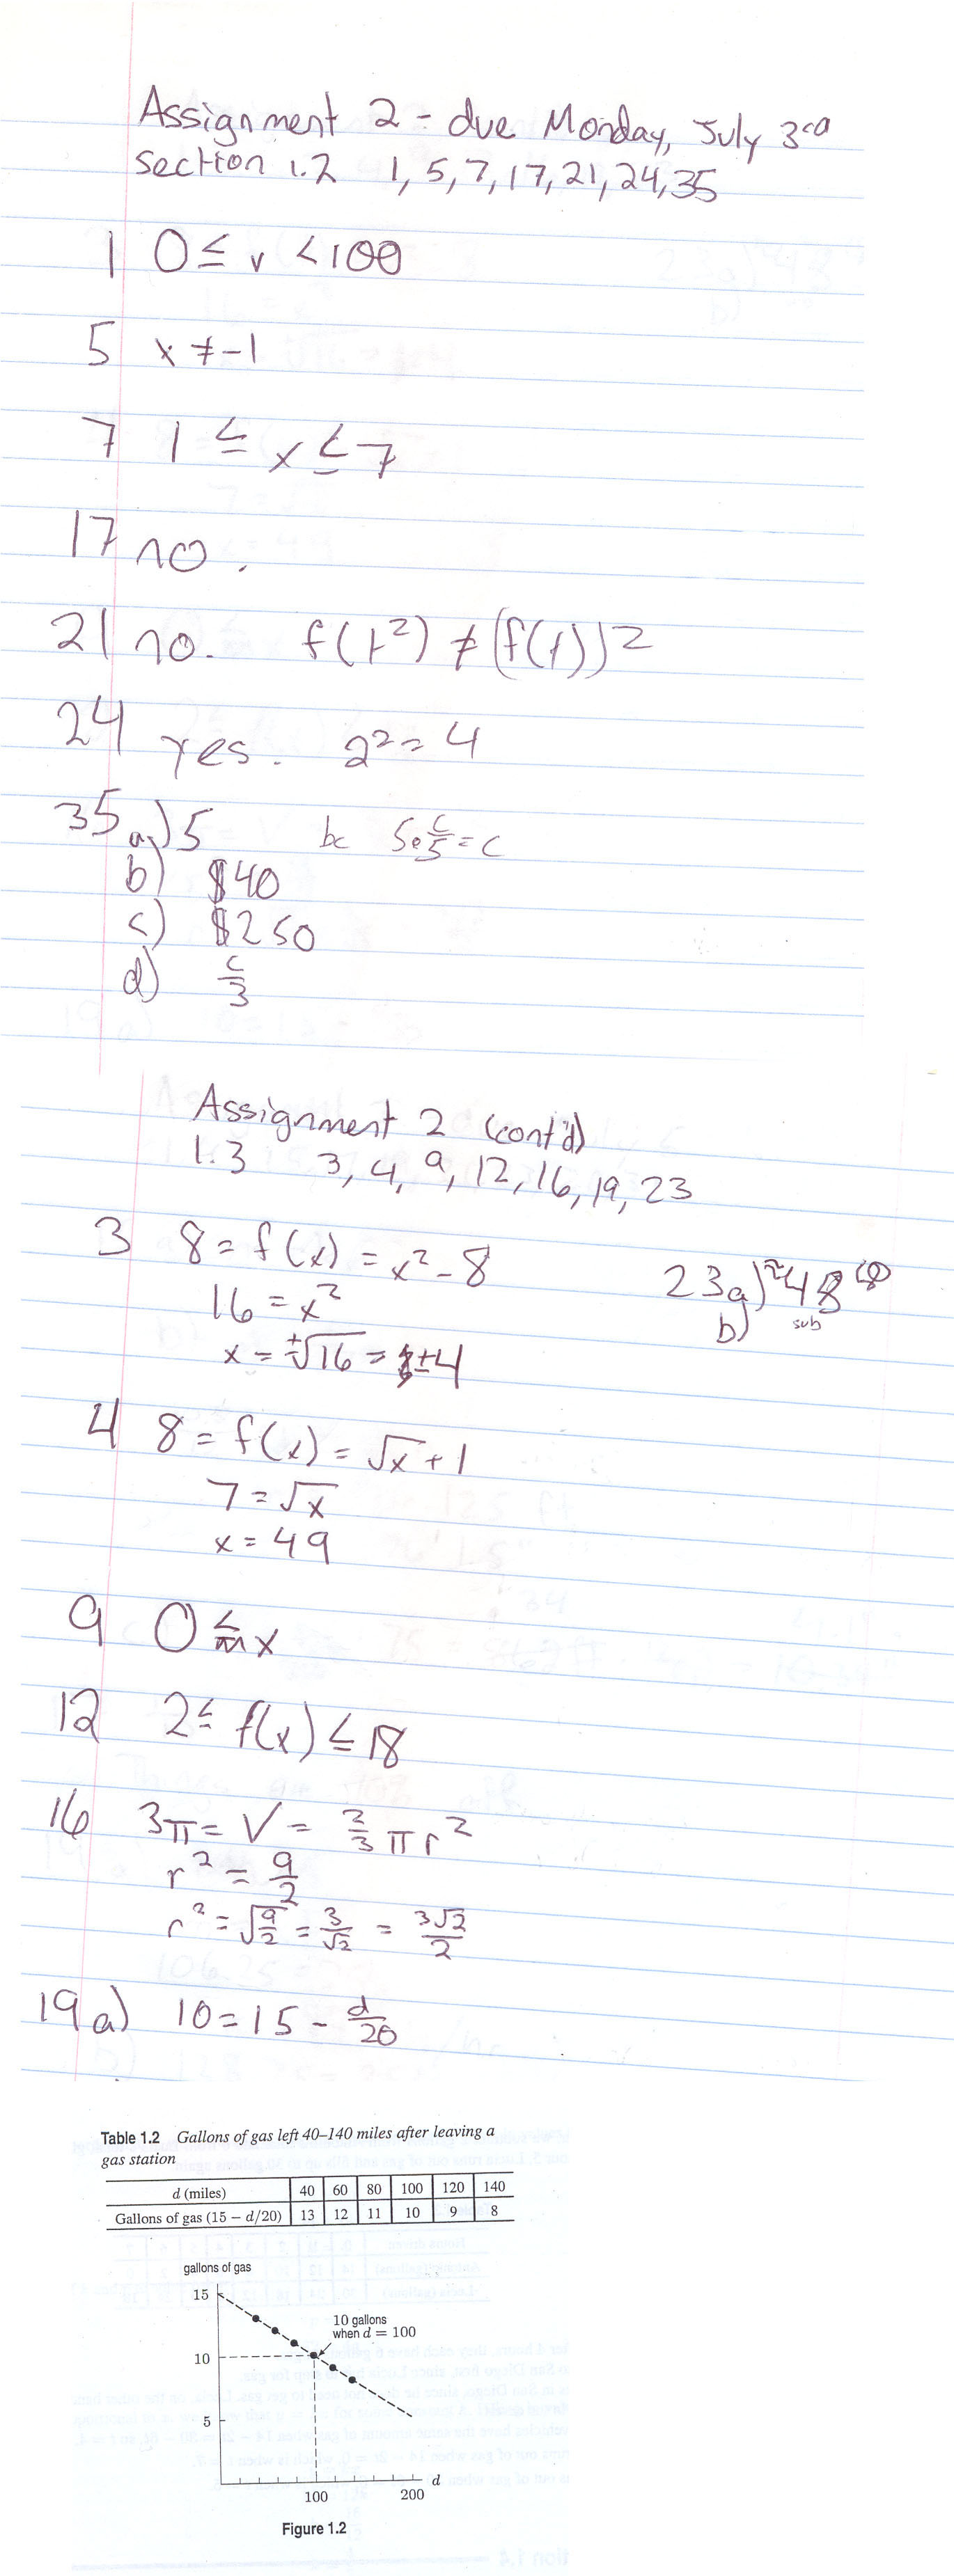 Assignment 2 - due Monday, July 3rd
section 1.2 1, 5, 7, 17, 21, 24, 35
1 0 ≤ v < 100
5 x ≠ -1
7 1 ≤ x ≤ 7
17 no.
21 no. f(1²) ≠ (f(1))²
24 yes. 2² = 4
35 a) 5 bc 5·c/5 = c
b) $40
c) $250
d) c/3
Assignment 2 (cont'd)
1.3 3, 4, 9, 12, 16, 19, 23
3 8 = f(x) = x² - 8
16 = x²
x = ±√16 = ±4
23a) 48
b) sub
4 8 = f(x) = √x + 1
7 = √x
x = 49
9 0 ≤ x
12 2 ≤ f(x) ≤ 18
16 3π = V = 2/3 πr²
r² = 9/2
r² = √9/2 = 3/√2 = 3√2/2
19 a) 10 = 15 - d/20
Table 1.2 Gallons of gas left 40–140 miles after leaving a
gas station
d (miles) 40 60 80 100 120 140
Gallons of gas (15 − d/20) 13 12 11 10 9 8
gallons of gas
15
10 gallons
when d = 100
10
5
d
100 200
Figure 1.2